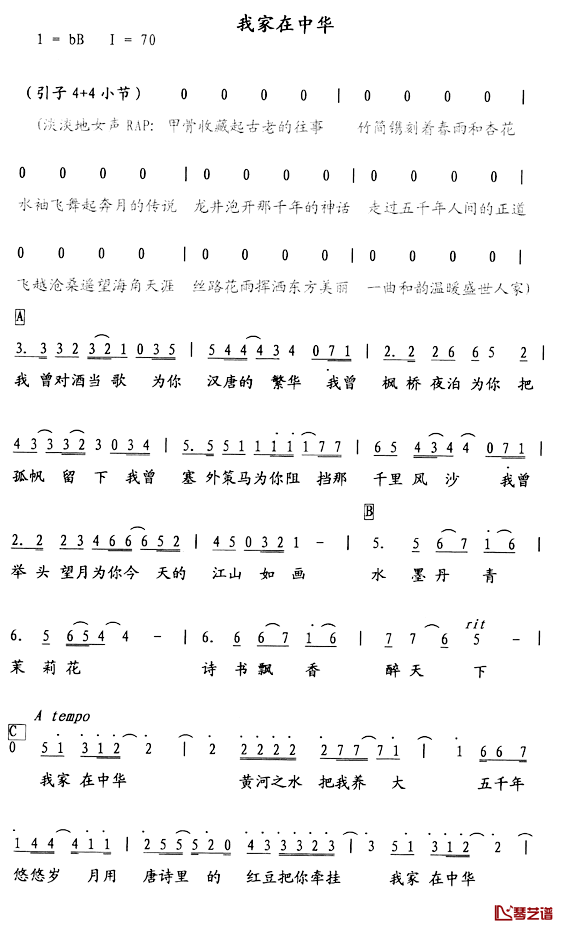 我家在中华
1 = bB   I = 70
(引子 4+4 小节) 0 0 0 0 | 0 0 0 0 |
(淡淡地女声 RAP: 甲骨收藏起古老的往事 竹简镌刻着春雨和杏花
0 0 0 0 | 0 0 0 0 | 0 0 0 0 |
水袖飞舞起奔月的传说 龙井泡开那千年的神话 走过五千年人间的正道
0 0 0 0 | 0 0 0 0 | 0 0 0 0 |
飞越沧桑遥望海角天涯 丝路花雨挥洒东方美丽 一曲和韵温暖盛世人家)
A
3. 3 3 2 3 2 1 0 3 5 | 5 4 4 4 3 4 0 7 1 | 2. 2 2 6 6 5 2 |
我 曾对酒当 歌 为你 汉唐的 繁华 我曾 枫桥夜泊为你 把
4 3 3 3 2 3 0 3 4 | 5. 5 5 1 1 1 1 1 1 7 7 | 6 5 4 3 4 4 0 7 1 |
孤帆 留 下 我曾 塞 外策马为你阻 挡那 千里 风 沙 我曾
B
2. 2 2 3 4 6 6 6 6 5 2 | 4 5 0 3 2 1 1 - | 5. 5 6 7 1 6 |
举 头 望月为你今 天的 江山 如 画 水 墨 丹 青
rit
6. 5 6 5 4 4 - | 6. 6 6 7 1 6 | 7 7 6 5 - |
茉 莉 花 诗 书 飘 香 醉 天 下
A tempo
C
0 5 1 3 1 2 2 | 2 2 2 2 2 2 7 7 7 1 | 1 6 6 7 |
我家 在中华 黄河之水 把我养 大 五千年
1 4 4 4 1 1 | 2 5 5 5 2 0 4 3 3 3 2 3 | 3 5 1 3 1 2 2 |
悠悠岁 月用 唐诗里 的 红豆把你牵挂 我家 在中华
琴艺谱